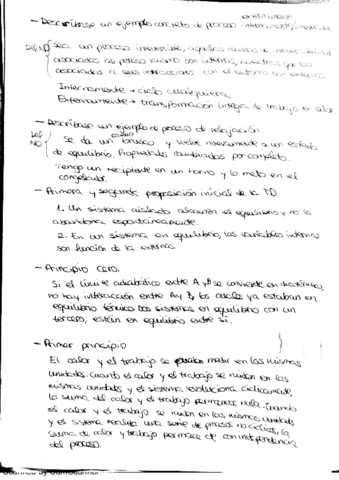 externamente
- Descríbase un ejemplo concreto de proceso internamente/irreversible
Sea un proceso irreversible, aquellas causas de irreversibilidad
asociadas al proceso mismo son internas, mientras que las
asociadas a sus interacciones con el entorno son externas
Internamente → ciclo cualquiera
Externamente → transformación íntegra de trabajo en calor
- Descríbase un ejemplo de proceso de relajación.
Se da un cambio brusco y vuelve nuevamente a un estado
de equilibrio. Propiedades cambiadas por completo.
Tengo un recipiente en un horno y lo meto en el
congelador.
- Primera y segunda proposición inicial de la TD
1. Un sistema aislado alcanza el equilibrio y no lo
abandona espontáneamente.
2. En un sistema en equilibrio, las variables internas
son función de las externas.
- Principio cero.
Si el límite adiabático entre A y B se convierte en diatérmico,
no hay interacción entre A y B, los cuales ya estaban en
equilibrio térmico. Dos sistemas en equilibrio con un
tercero, están en equilibrio entre sí.
- Primer principio
El calor y el trabajo se pueden medir en las mismas
unidades. Cuando el calor y el trabajo se miden en las
mismas unidades y el sistema evoluciona cíclicamente,
la suma del calor y el trabajo permanece nula. Cuando
el calor y el trabajo se miden en las mismas unidades
y el sistema realiza una serie de procesos no cíclicos, la
suma de calor y trabajo permanece con independencia
del proceso.